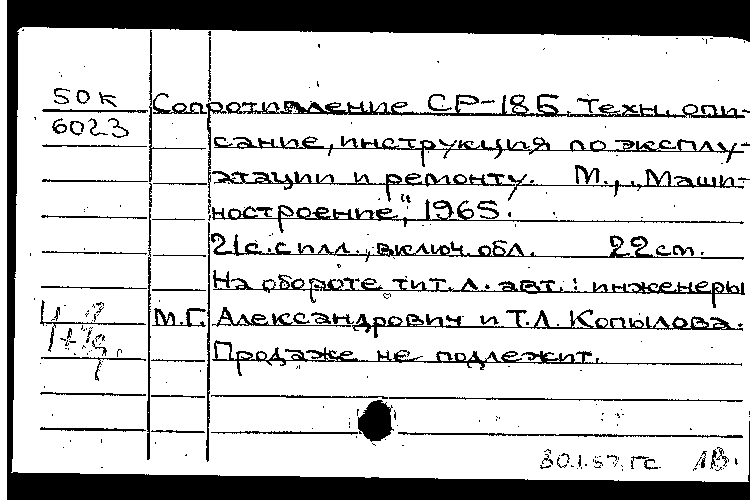 50к
6023
Сопротивление СР-18Б. Техн. опи-
сание, инструкция по эксплу-
атации и ремонту. М., „Маши-
ностроение", 1965.
21с. с илл., включ. обл. 22 см.
На обороте тит. л. авт.: инженеры
М.Г. Александрович и Т.Л. Копылова.
Продаже не подлежит.